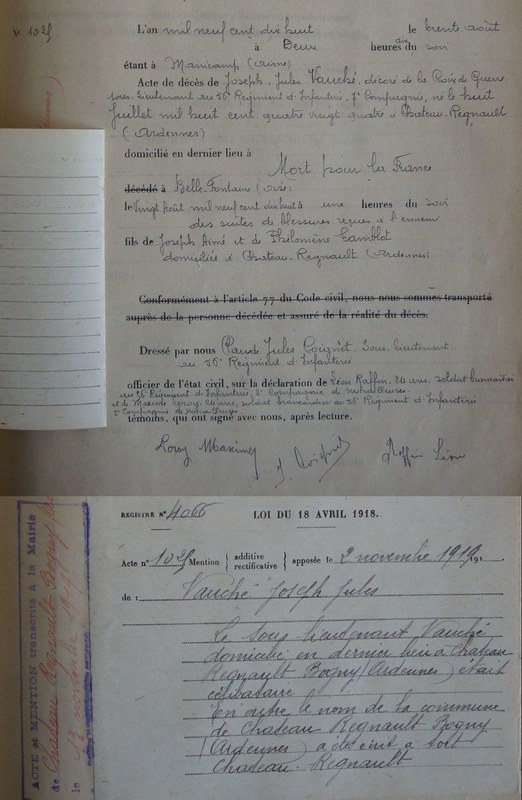 N° 1025
L'an mil neuf cent dix huit le trente août
à Deux heures du dix soir
étant à Manicamp (Aisne)
Acte de décès de Joseph Jules Vauché, décoré de la Croix de Guerre
sous-lieutenant au 56e Régiment d'Infanterie, 7e Compagnie, né le huit
Juillet mil huit cent quatre vingt quatre à Chateau-Regnault
(Ardennes)
domicilié en dernier lieu à
Mort pour la France
décédé à Belle-Fontaine (Oise)
le vingt Août mil neuf cent dix huit à une heures du soir
des suites de blessures reçues à l'ennemi
fils de Joseph Aimé et de Philomène Camblot
domiciliés à Chateau-Regnault (Ardennes)
Conformément à l'article 77 du Code civil, nous nous sommes transporté
auprès de la personne décédée et assuré de la réalité du décès.
Dressé par nous Claude Jules Coignet Sous-lieutenant
au 56e Régiment d'Infanterie
officier de l'état civil, sur la déclaration de Léon Raffin, 24 ans, soldat brancardier
au 56e Régiment d'Infanterie, 2e Compagnie de mitrailleuses
et de Maxime Leroy, 24 ans, soldat brancardier au 56e Régiment d'Infanterie
2e Compagnie de mitrailleuses
témoins, qui ont signé avec nous, après lecture.
Leroy Maxime J. Coignet Raffin Léon
REGISTRE N° 4066 LOI DU 18 AVRIL 1918.
Acte n° 1025 Mention { additive rectificative } apposée le 2 novembre 1919 191
de : Vauché Joseph Jules
Le sous lieutenant Vauché
domicilié en dernier lieu à Chateau
Regnault Bogny (Ardennes) était
célibataire
En outre le nom de la commune
de Chateau Regnault Bogny
(Ardennes) a été écrit à tort
Chateau-Regnault
ACTE et MENTION transcrits à la Mairie
de Chateau Regnault Bogny
le 12 novembre 1919